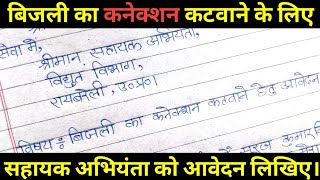 बिजली का कनेक्शन कटवाने के लिए
सेवा में,
श्रीमान, सहायक अभियंता,
विद्युत विभाग,
रायबरेली, उ०प्र०।
विषय : बिजली का कनेक्शन कटवाने हेतु आवेदन
सूरज कुमार
सहायक अभियंता को आवेदन लिखिए।